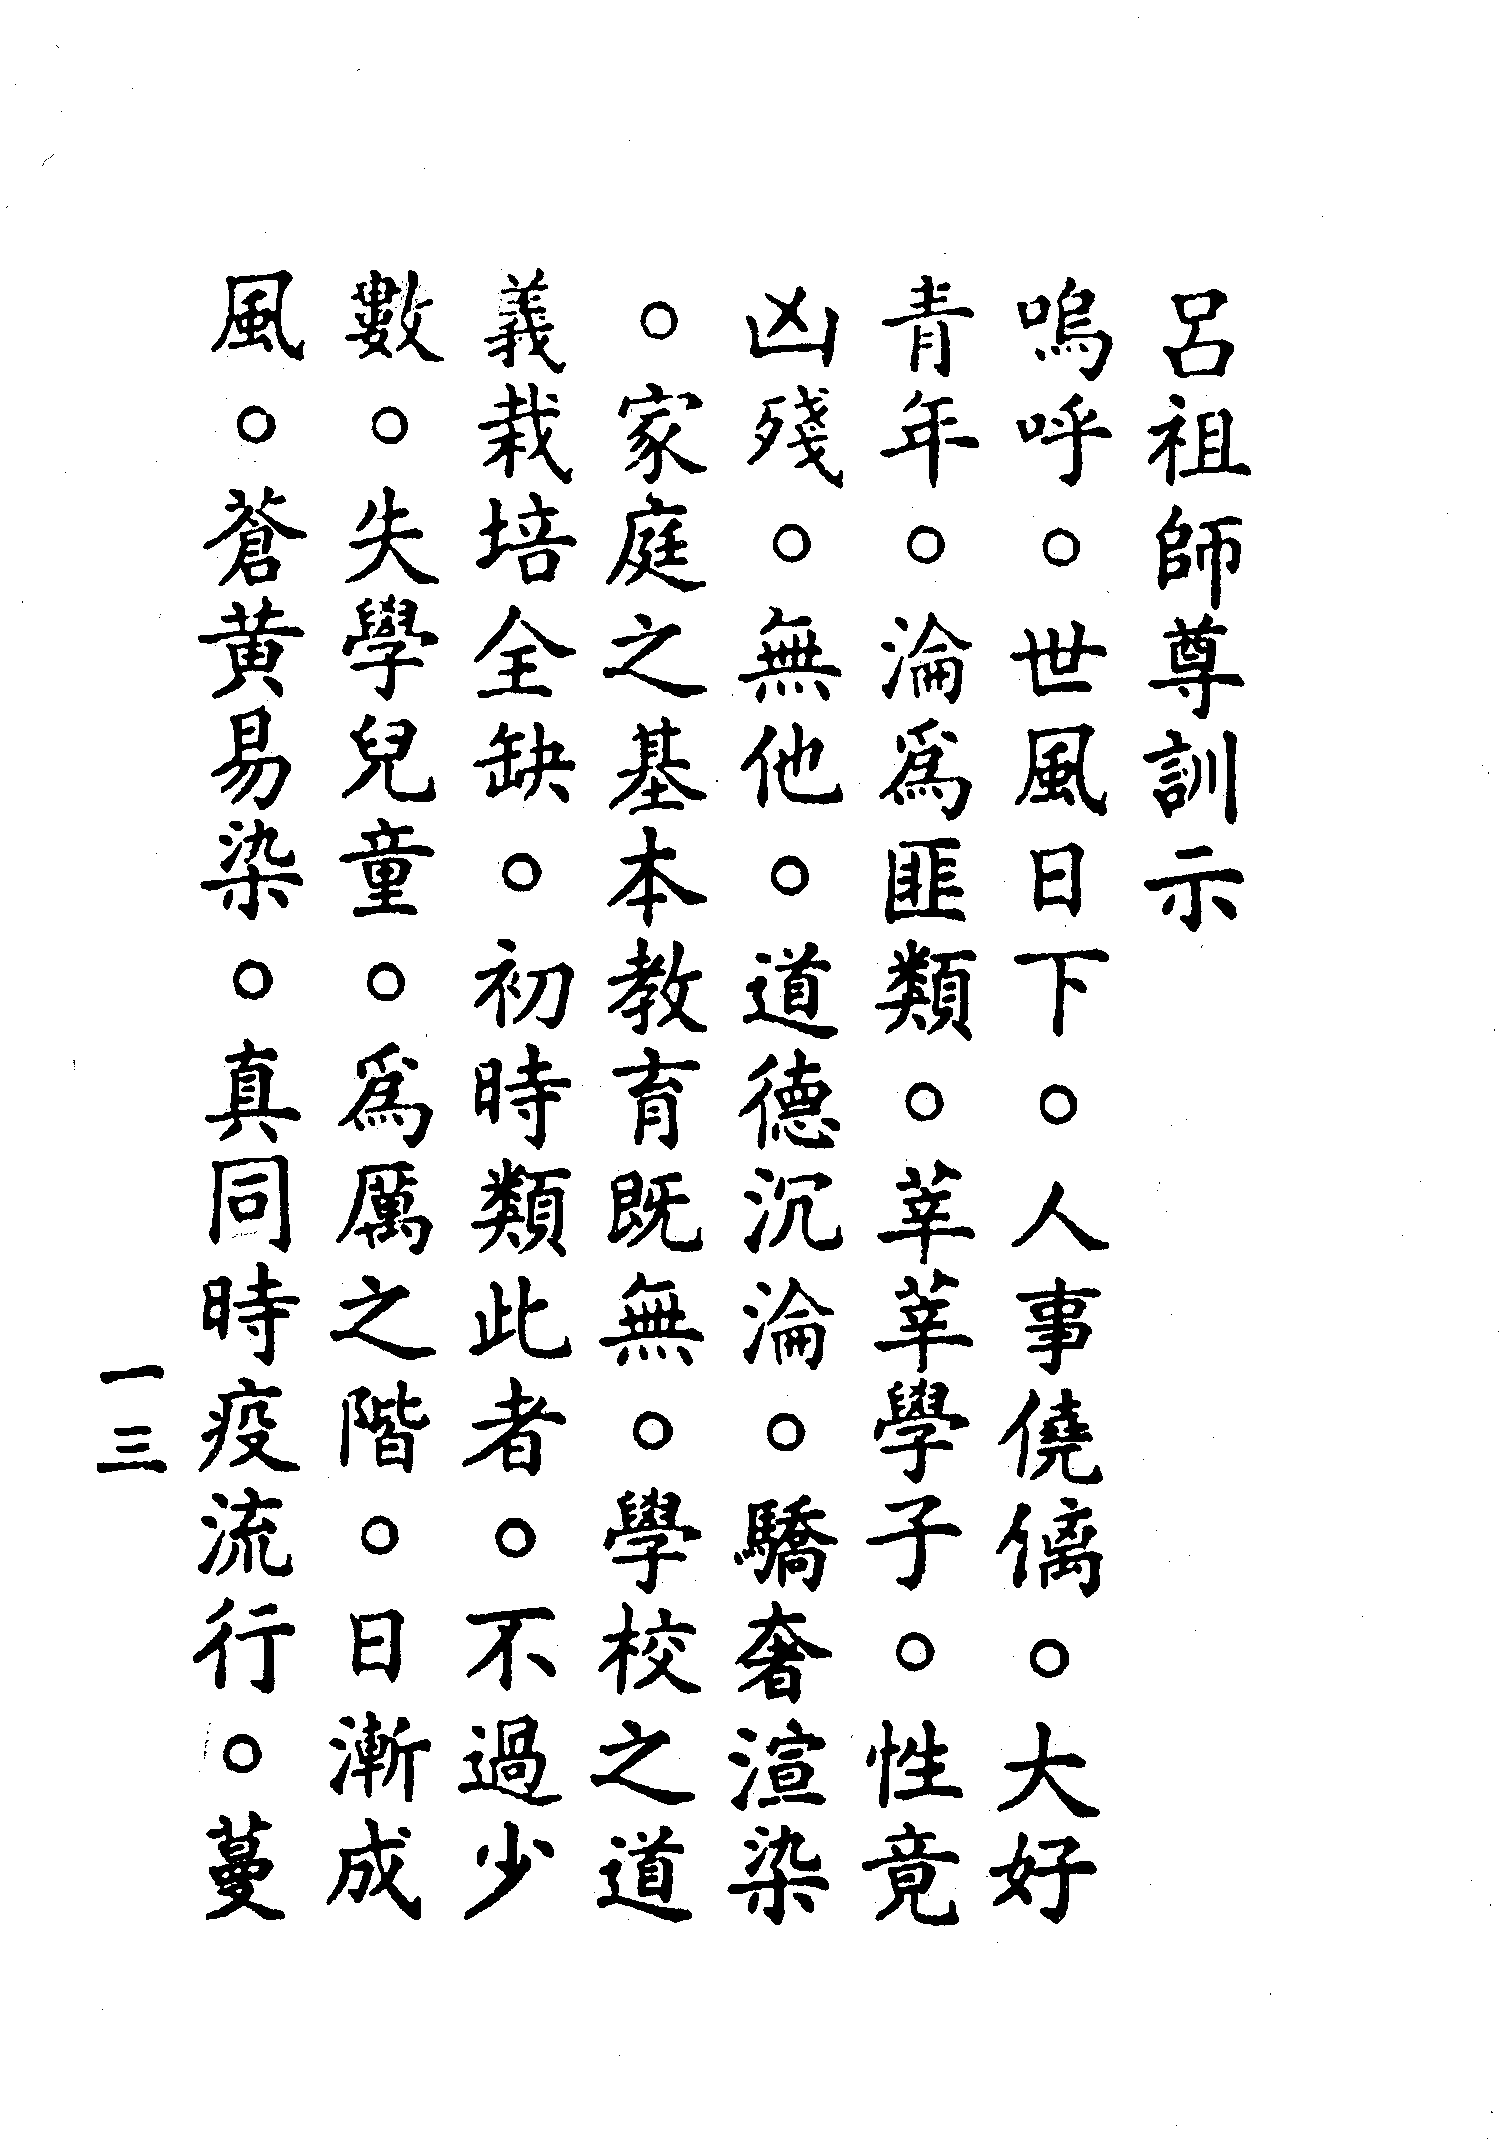 呂祖師尊訓示
嗚呼。世風日下。人事僥僞。大好
青年。淪爲匪類。莘莘學子。性竟
凶殘。無他。道德沉淪。驕奢渲染
。家庭之基本教育既無。學校之道
義栽培全缺。初時類此者。不過少
數。失學兒童。爲厲之階。日漸成
風。蒼黃易染。真同時疫流行。蔓
一三